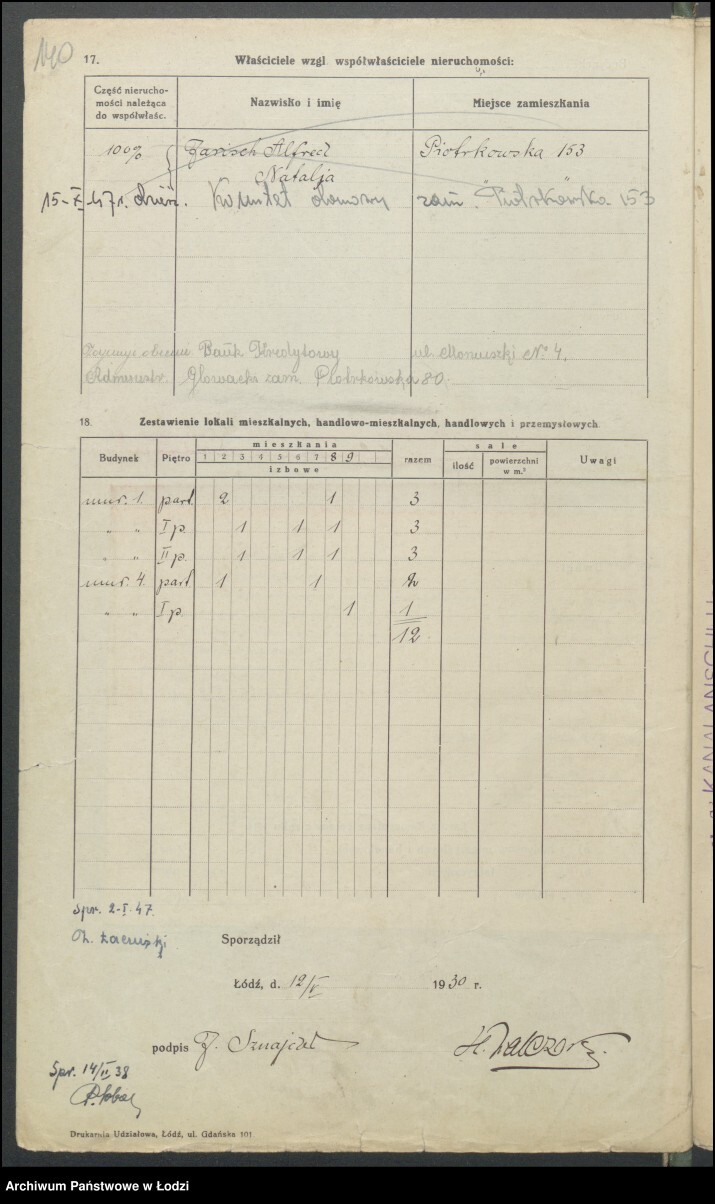 140
17. Właściciele wzgl. współwłaściciele nieruchomości:
Część nierucho-
mości należąca
do współwłaśc.
Nazwisko i imię
Miejsce zamieszkania
100% Jarisch Alfred Piotrkowska 153
Natalja
15-X-47r. Komitet domowy zam. "Piotrkowska" 153
obecnie Bank Kredytowy ul. Moniuszki No 4,
Administr. Głowacki zam. Piotrkowska 80.
18. Zestawienie lokali mieszkalnych, handlowo-mieszkalnych, handlowych i przemysłowych.
Budynek Piętro mieszkania razem sale Uwagi
1 2 3 4 5 6 7 8 9
izbowe
ilość powierzchni w m.²
mur. 1. part. 2 1 3
" " I p. 1 1 1 3
" " II p. 1 1 1 3
mur. 4. part. 1 1 2
" " I p. 1 1
12
Spr. 2-I-47.
Sporządził
Łódź, d. 12/V 1930 r.
podpis J. Sznajdel
Spr. 14/II 38
Drukarnia Udziałowa, Łódź, ul. Gdańska 101
Archiwum Państwowe w Łodzi